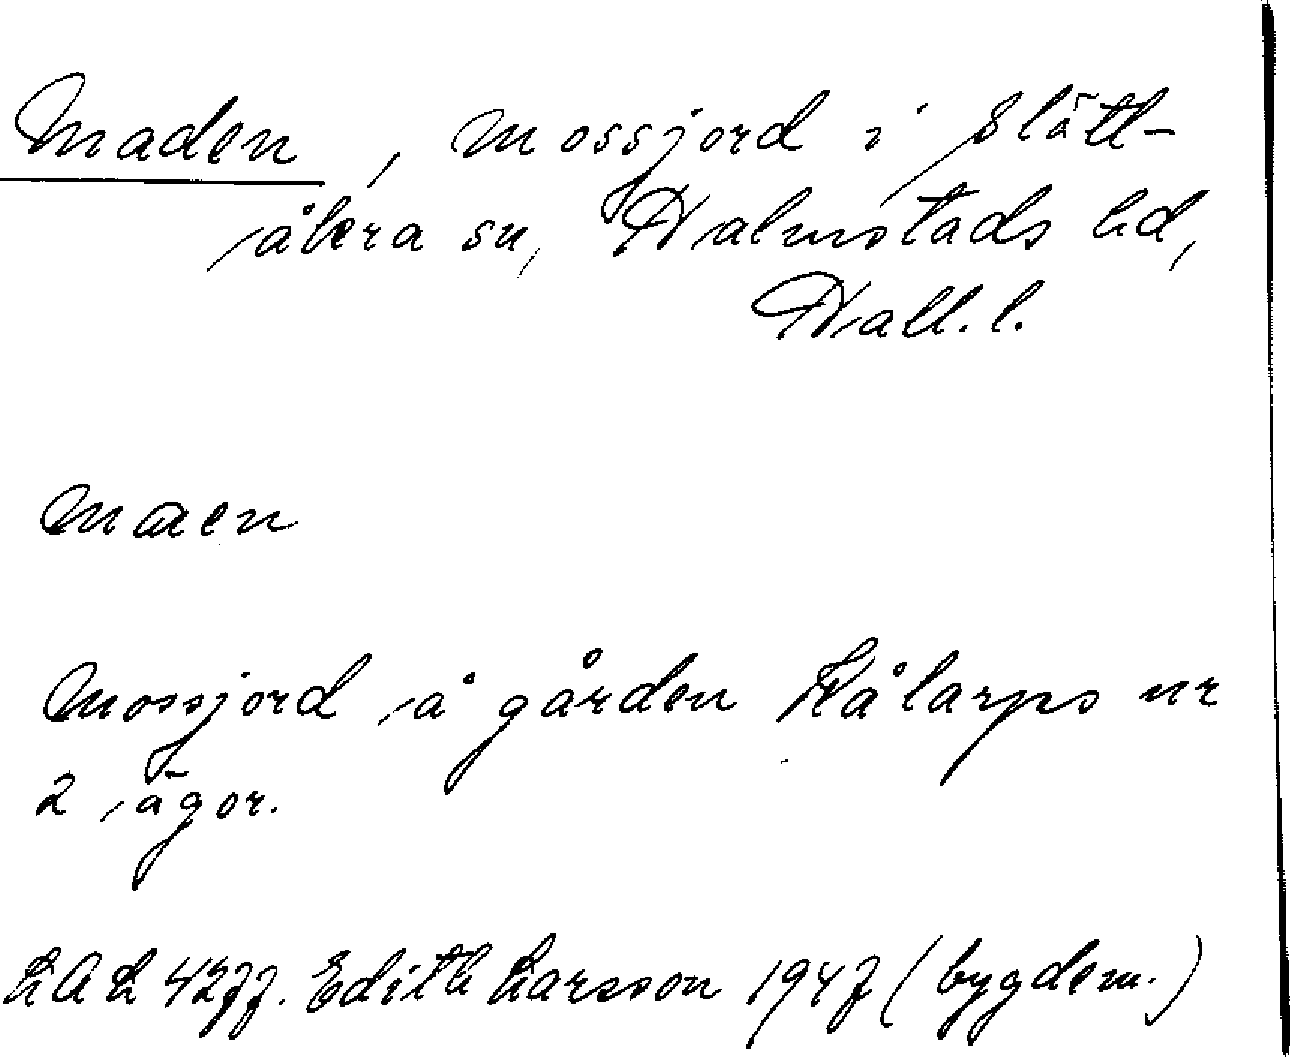 Maden, mossjord i Slätt-
åkra sn, Halmstads hd,
Hall. l.
maen
Mossjord å gården Kålarps nr
2 ägor.
LAL 4277. Edith Larsson 1947 (bygdem.)